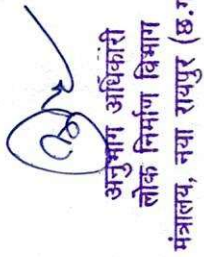 अनुभाग अधिकारी
लोक निर्माण विभाग
मंत्रालय, नवा रायपुर (छ.ग